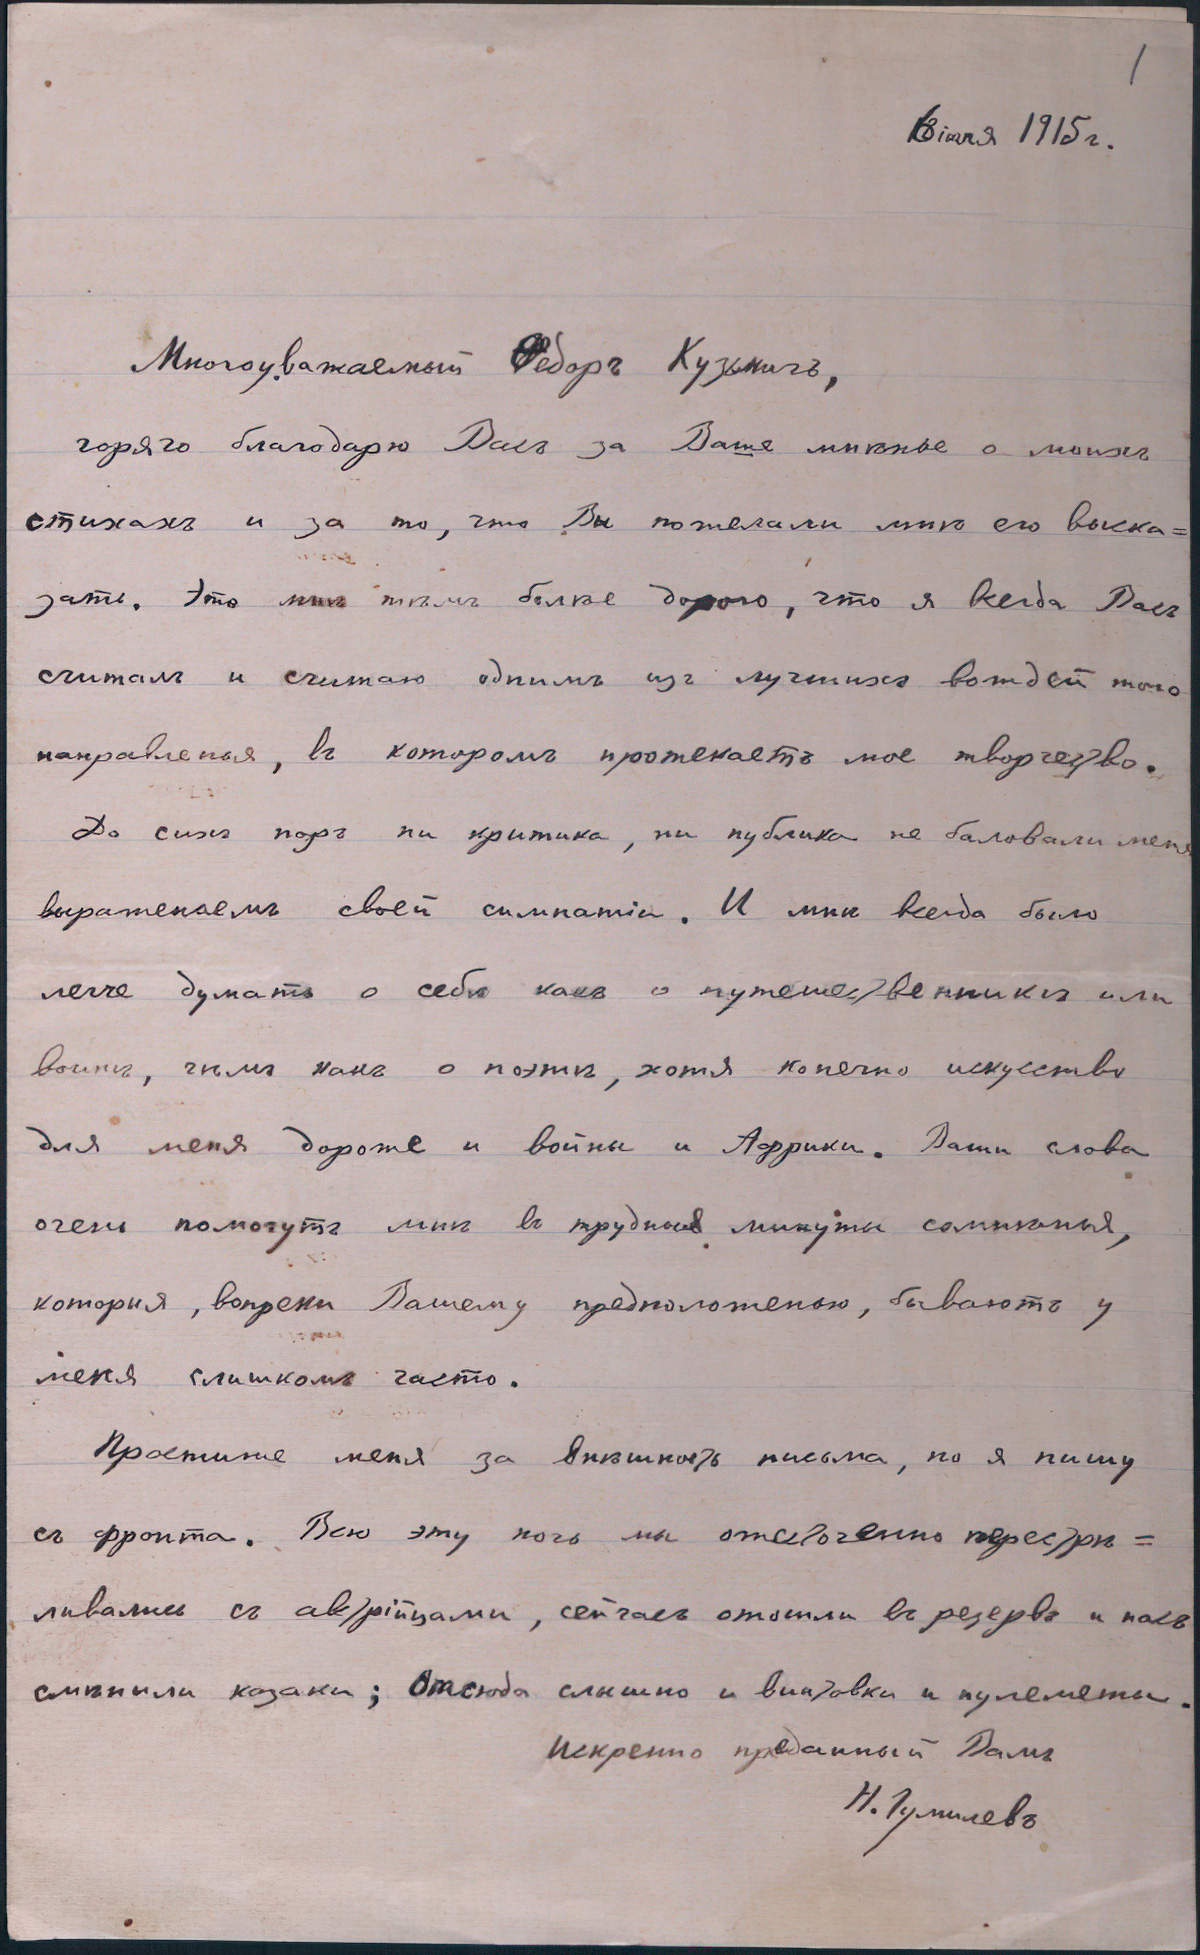 1
іюля 1915 г.
Многоуважаемый Федоръ Кузьмичъ,
горячо благодарю Васъ за Ваше мнѣнье о моихъ
стихахъ и за то, что Вы пожелали мнѣ его выска=
зать. Это мнѣ тѣмъ болѣе дорого, что я всегда Васъ
считалъ и считаю однимъ изъ лучшихъ вождей того
направленья, въ которомъ протекаетъ мое творчество.
До сихъ поръ ни критика, ни публика не баловали меня
выраженьемъ своей симпатіи. И мнѣ всегда было
легче думать о себѣ какъ о путешественникѣ или
воинѣ, чѣмъ какъ о поэтѣ, хотя конечно искусство
для меня дороже и войны и Африки. Ваши слова
очень помогутъ мнѣ въ трудныя минуты сомнѣнья,
которыя, вопреки Вашему предположенью, бываютъ у
меня слишкомъ часто.
Простите меня за внѣшность письма, но я пишу
съ фронта. Всю эту ночь мы ожесточенно перестрѣ=
ливались съ австрійцами, сейчасъ отошли въ резервъ и насъ
смѣнили казаки; отсюда слышно и винтовки и пулеметы.
Искренно преданный Вамъ
Н. Гумилевъ